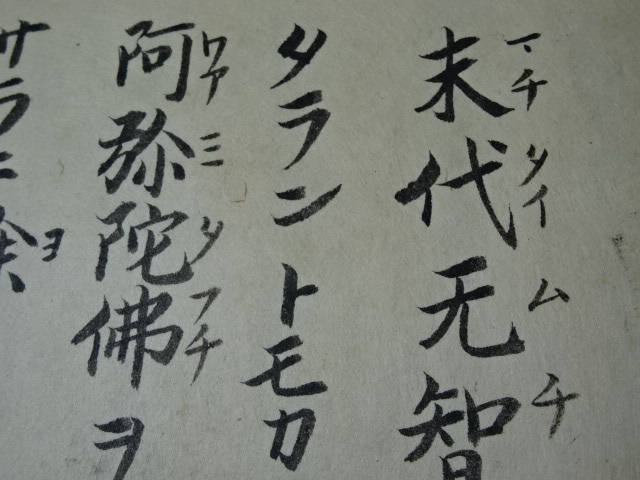 末代无智
マチタイムチ
タラントモカ
阿弥陀佛ヲ
ワアミタフチ
サラニ余
ヨ